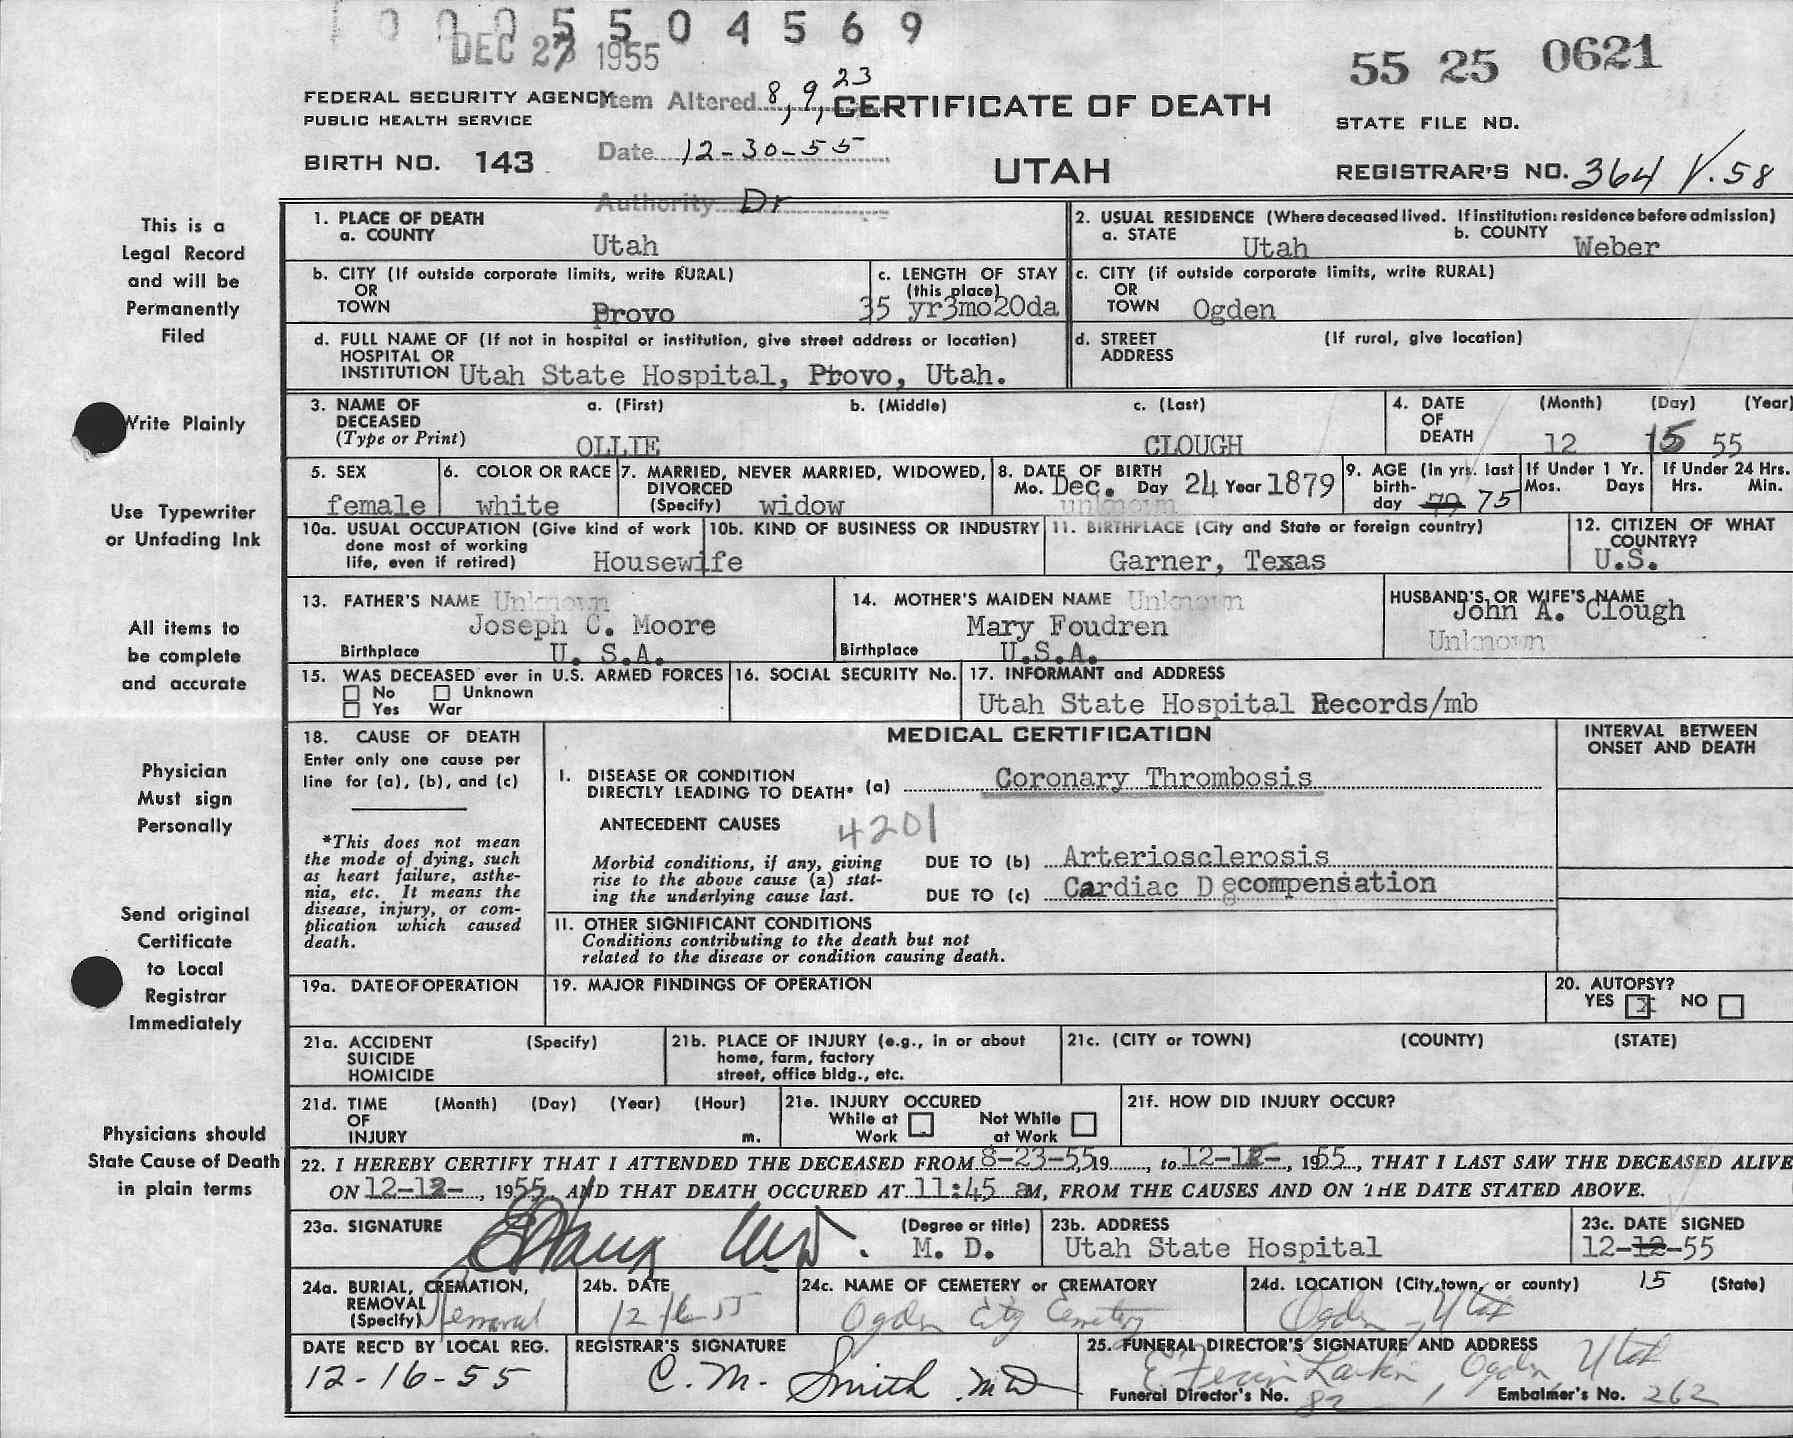 1 0 0 0 5 5 0 4 5 6 9
DEC 27 1955
55 25 0621
FEDERAL SECURITY AGENCY
PUBLIC HEALTH SERVICE
Item Altered 8, 9, 23
CERTIFICATE OF DEATH
STATE FILE NO.
BIRTH NO. 143
Date 12-30-55
UTAH
REGISTRAR'S NO. 364 V.58
Authority Dr
This is a
Legal Record
and will be
Permanently
Filed
Write Plainly
Use Typewriter
or Unfading Ink
All items to
be complete
and accurate
Physician
Must sign
Personally
Send original
Certificate
to Local
Registrar
Immediately
Physicians should
State Cause of Death
in plain terms
1. PLACE OF DEATH
a. COUNTY
Utah
2. USUAL RESIDENCE (Where deceased lived. If institution: residence before admission)
a. STATE Utah b. COUNTY Weber
b. CITY (If outside corporate limits, write RURAL)
OR
TOWN Provo
c. LENGTH OF STAY
(this place)
35 yr3mo20da
c. CITY (if outside corporate limits, write RURAL)
OR
TOWN Ogden
d. FULL NAME OF (If not in hospital or institution, give street address or location)
HOSPITAL OR
INSTITUTION Utah State Hospital, Provo, Utah.
d. STREET (If rural, give location)
ADDRESS
3. NAME OF a. (First) b. (Middle) c. (Last)
DECEASED
(Type or Print) OLLIE CLOUGH
4. DATE (Month) (Day) (Year)
OF
DEATH 12 15 55
5. SEX
female
6. COLOR OR RACE
white
7. MARRIED, NEVER MARRIED, WIDOWED,
DIVORCED
(Specify) widow
8. DATE OF BIRTH
Mo. Dec. Day 24 Year 1879
unknown
9. AGE (In yrs. last
birth-
day 79 75
If Under 1 Yr.
Mos. Days
If Under 24 Hrs.
Hrs. Min.
10a. USUAL OCCUPATION (Give kind of work
done most of working
life, even if retired) Housewife
10b. KIND OF BUSINESS OR INDUSTRY
11. BIRTHPLACE (City and State or foreign country)
Garner, Texas
12. CITIZEN OF WHAT
COUNTRY?
U.S.
13. FATHER'S NAME Unknown
Joseph C. Moore
Birthplace U. S.A.
14. MOTHER'S MAIDEN NAME Unknown
Mary Foudren
Birthplace U.S.A.
HUSBAND'S OR WIFE'S NAME
John A. Clough
Unknown
15. WAS DECEASED ever in U.S. ARMED FORCES
No Unknown
Yes War
16. SOCIAL SECURITY No.
17. INFORMANT and ADDRESS
Utah State Hospital Records/mb
18. CAUSE OF DEATH
Enter only one cause per
line for (a), (b), and (c)
*This does not mean
the mode of dying, such
as heart failure, asthe-
nia, etc. It means the
disease, injury, or com-
plication which caused
death.
MEDICAL CERTIFICATION
INTERVAL BETWEEN
ONSET AND DEATH
I. DISEASE OR CONDITION
DIRECTLY LEADING TO DEATH* (a) Coronary Thrombosis
ANTECEDENT CAUSES 4201
Morbid conditions, if any, giving
rise to the above cause (a) stat-
ing the underlying cause last.
DUE TO (b) Arteriosclerosis
DUE TO (c) Cardiac Decompensation
II. OTHER SIGNIFICANT CONDITIONS
Conditions contributing to the death but not
related to the disease or condition causing death.
19a. DATE OF OPERATION
19. MAJOR FINDINGS OF OPERATION
20. AUTOPSY?
YES x NO
21a. ACCIDENT (Specify)
SUICIDE
HOMICIDE
21b. PLACE OF INJURY (e.g., in or about
home, farm, factory
street, office bldg., etc.
21c. (CITY or TOWN) (COUNTY) (STATE)
21d. TIME (Month) (Day) (Year) (Hour)
OF
INJURY m.
21e. INJURY OCCURED
While at Not While
Work at Work
21f. HOW DID INJURY OCCUR?
22. I HEREBY CERTIFY THAT I ATTENDED THE DECEASED FROM 8-23-55 19, to 12-12-, 1955, THAT I LAST SAW THE DECEASED ALIVE
ON 12-12-, 1955, AND THAT DEATH OCCURED AT 11:45 aM, FROM THE CAUSES AND ON THE DATE STATED ABOVE.
23a. SIGNATURE (Degree or title)
M. D.
23b. ADDRESS
Utah State Hospital
23c. DATE SIGNED
12-12-55
15
24a. BURIAL, CREMATION,
REMOVAL
(Specify) Removal
24b. DATE
12 16 55
24c. NAME OF CEMETERY or CREMATORY
Ogden City Cemetery
24d. LOCATION (City, town, or county) (State)
Ogden, Utah
DATE REC'D BY LOCAL REG.
12-16-55
REGISTRAR'S SIGNATURE
C. M. Smith MD
25. FUNERAL DIRECTOR'S SIGNATURE AND ADDRESS
Larkin, Ogden, Utah
Funeral Director's No. 82 Embalmer's No. 262